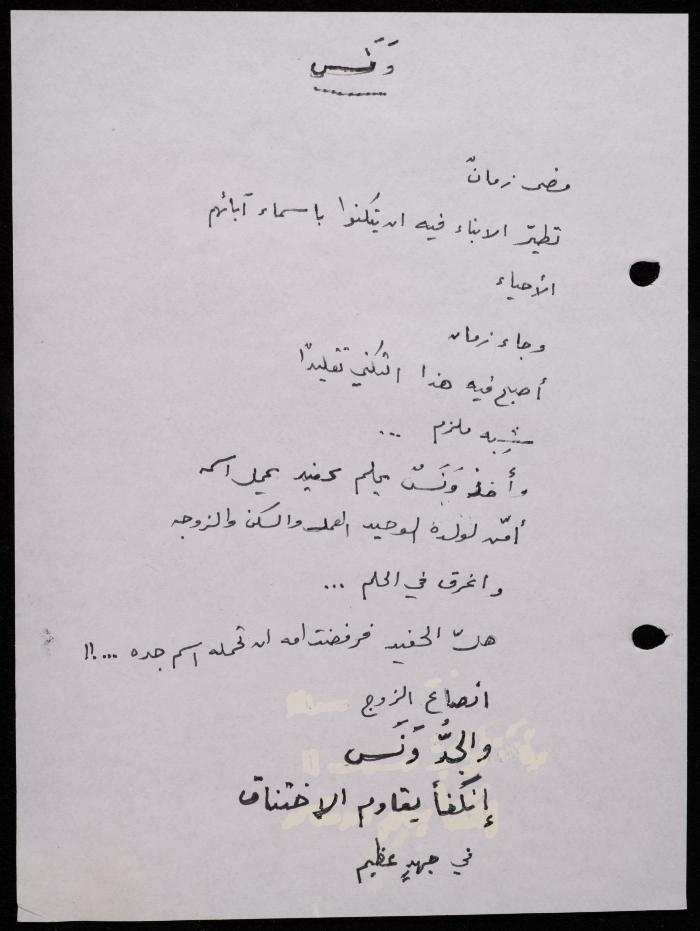 وَنَس
مضى زمانٌ
تطيّر الابناء فيه ان يتكنوا باسماء آبائهم
الأحياء
وجاء زمان
أصبح فيه هذا التكني تقليدًا
شِبه ملزم ...
وأخذ وَنَسٌ يحلم بحفيد يحمل اسمه
أمّن لولده الوحيد العمل والسكن والزوجه
واغرق في الحلم ...
هلّ الحفيد فرفضت امه ان تحمله اسم جده ...!!
انصاع الزوج
والجدُّ وَنَس
إنكفأ يقاوم الإختناق
في جهدٍ عظيم